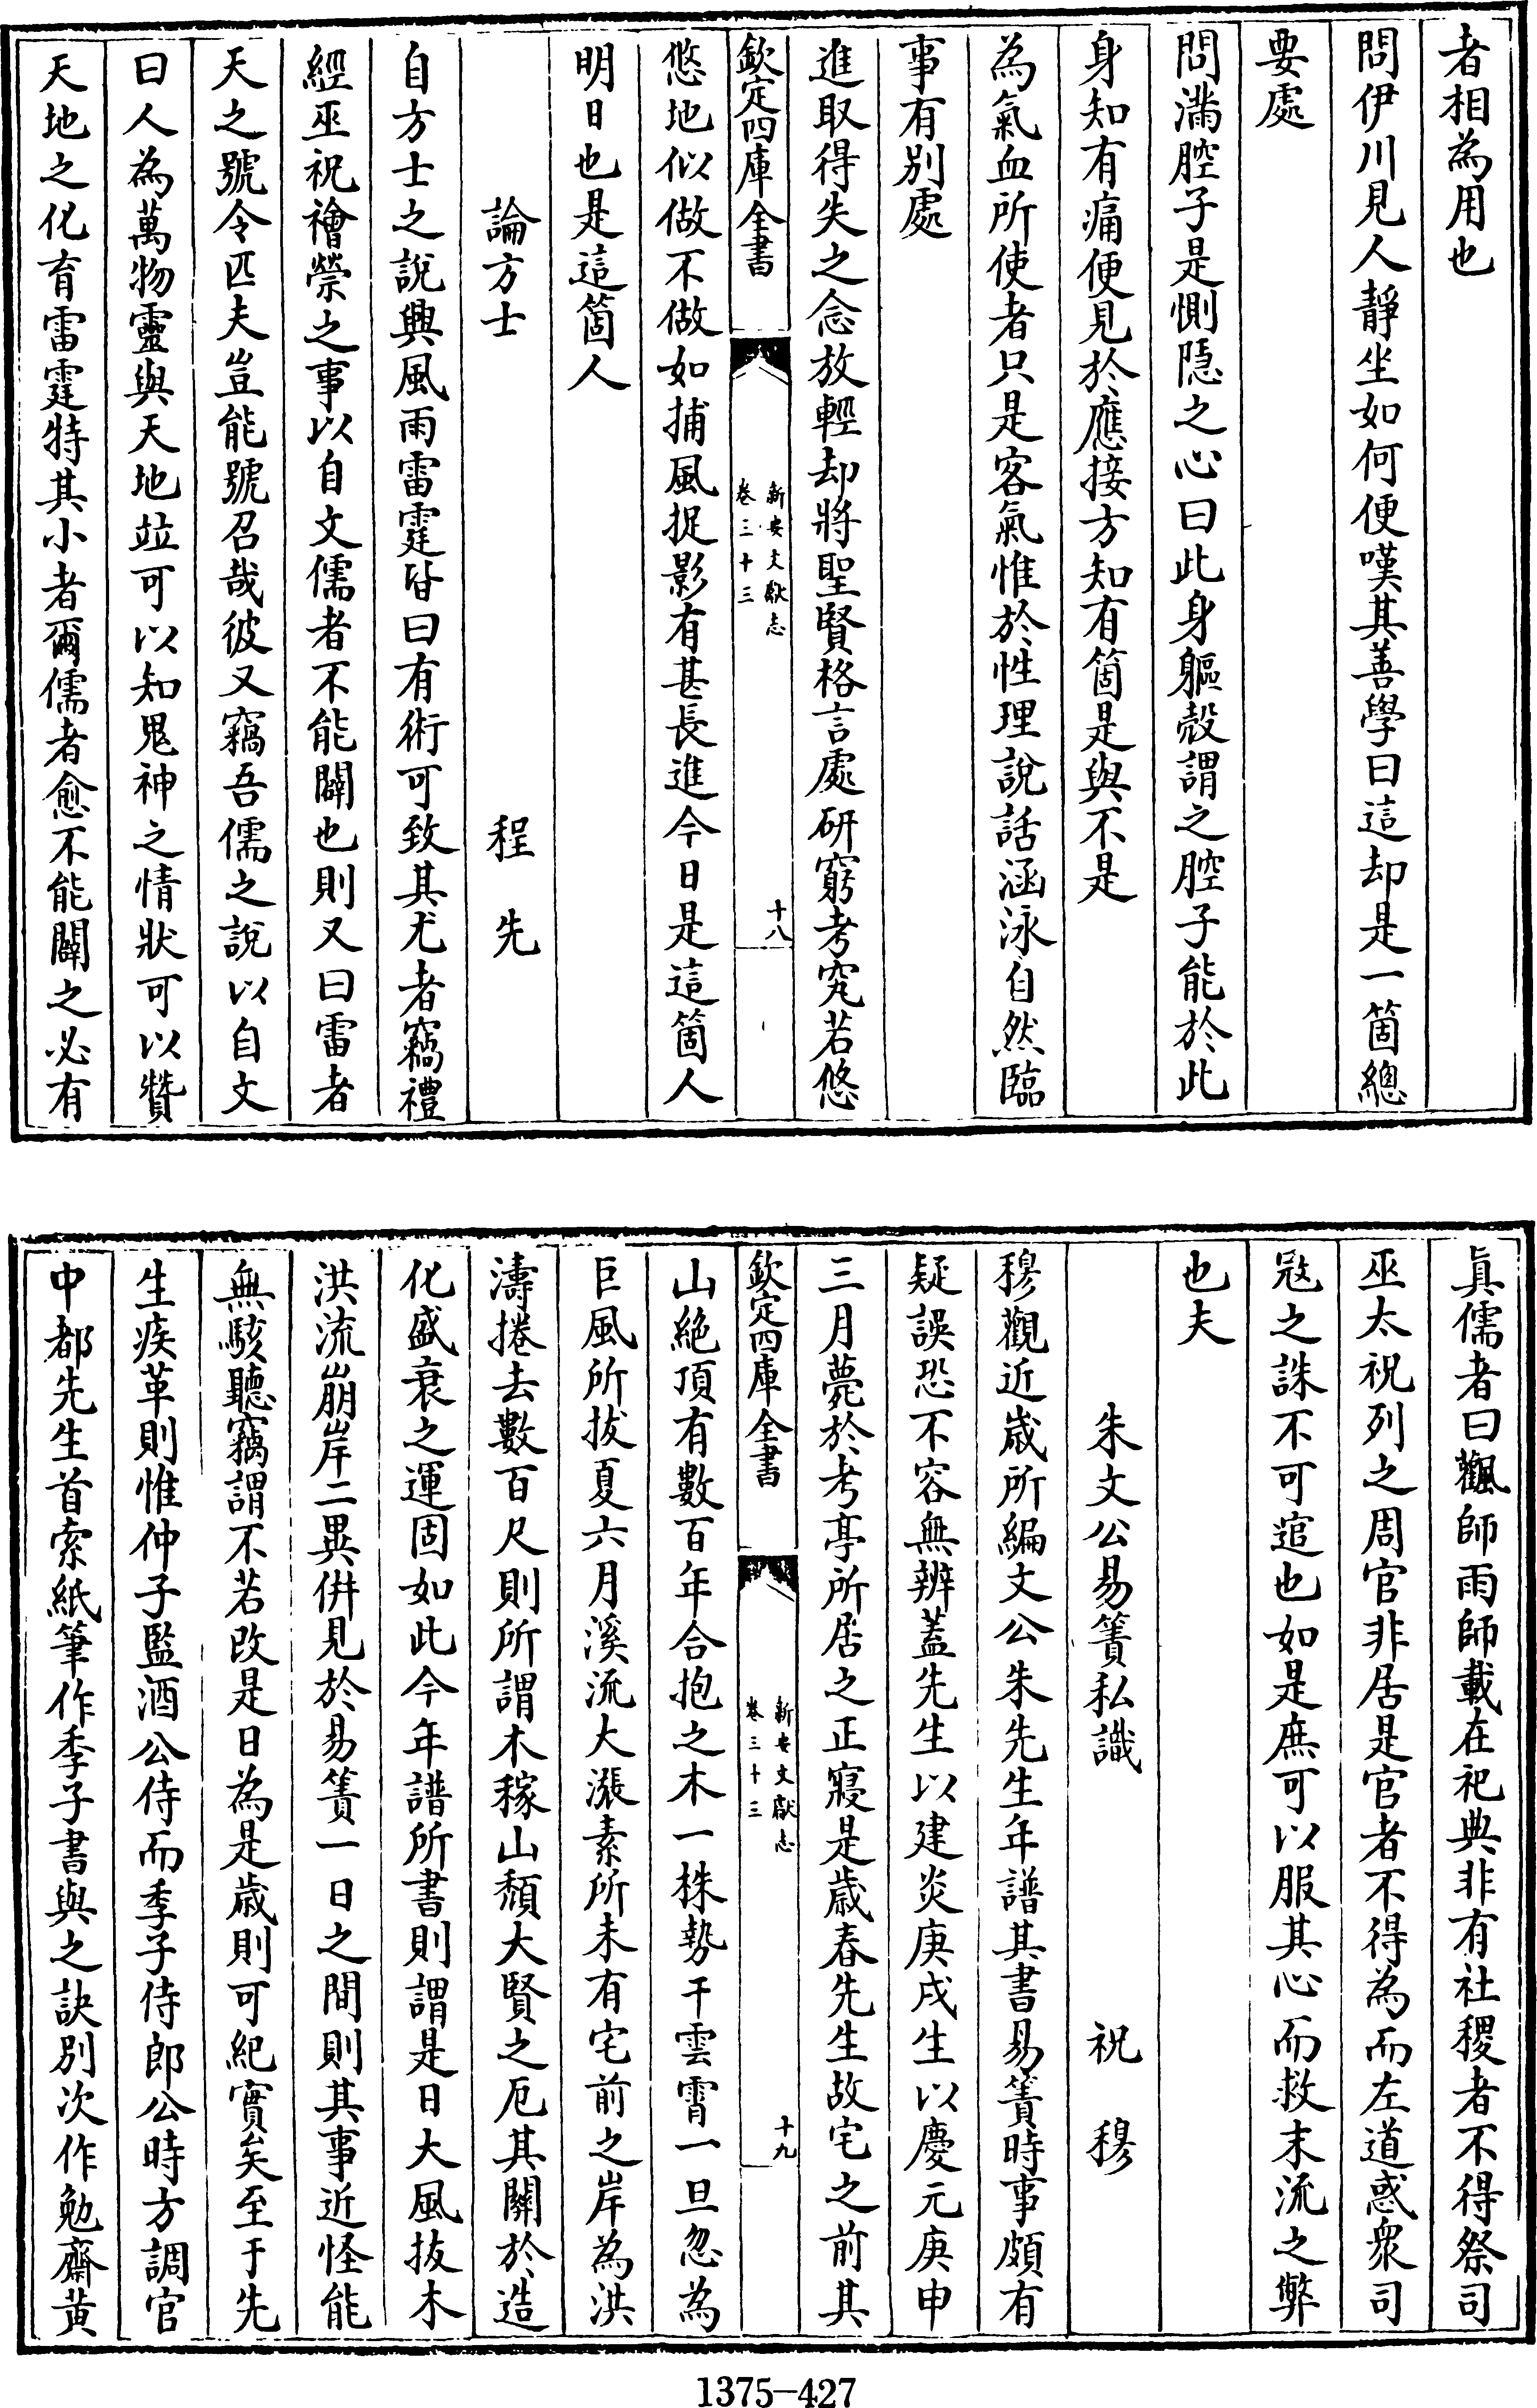 者相為用也
問伊川見人靜坐如何便嘆其善學曰這却是一箇總
要處
問滿腔子是惻隠之心曰此身軀殻謂之腔子能於此
身知有痛便見於應接方知有箇是與不是
為氣血所使者只是客氣惟於性理說話涵泳自然臨
事有別處
進取得失之念放輕却將聖賢格言處研窮考究若悠
欽定四庫全書
新安文獻志
卷三十三
十八
悠地似做不做如捕風捉影有甚長進今日是這箇人
明日也是這箇人
論方士
程先
自方士之說興風雨雷霆皆曰有術可致其尤者竊禮
經巫祝禬禜之事以自文儒者不能闢也則又曰雷者
天之號令匹夫豈能號召哉彼又竊吾儒之說以自文
曰人為萬物靈與天地竝可以知鬼神之情狀可以贊
天地之化育雷霆特其小者爾儒者愈不能闢之必有
真儒者曰飌師雨師載在祀典非有社稷者不得祭司
巫太祝列之周官非居是官者不得為而左道惑衆司
冦之誅不可逭也如是庶可以服其心而救末流之弊
也夫
朱文公易簀私識
祝穆
穆觀近嵗所編文公朱先生年譜其書易簀時事頗有
疑誤恐不容無辨蓋先生以建炎庚戌生以慶元庚申
三月薨於考亭所居之正寢是嵗春先生故宅之前其
欽定四庫全書
新安文獻志
卷三十三
十九
山絶頂有數百年合抱之木一株勢干雲霄一旦忽為
巨風所拔夏六月溪流大漲素所未有宅前之岸為洪
濤捲去數百尺則所謂木稼山頽大賢之厄其關於造
化盛衰之運固如此今年譜所書則謂是日大風拔木
洪流崩岸二異倂見於易簀一日之間則其事近怪能
無駭聽竊謂不若改是日為是嵗則可紀實矣至于先
生疾革則惟仲子監酒公侍而季子侍郎公時方調官
中都先生首索紙筆作季子書與之訣別次作勉齋黃
1375-427